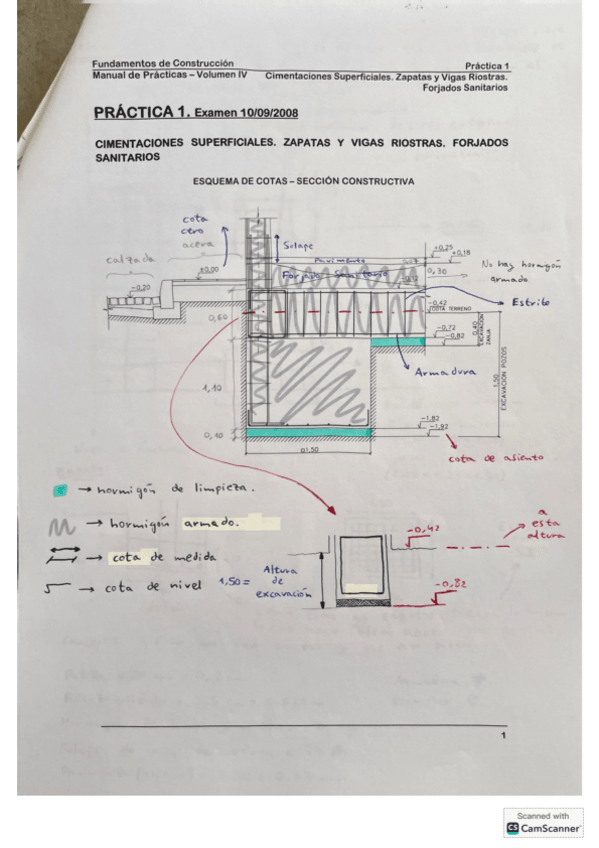 Fundamentos de Construcción
Práctica 1
Manual de Prácticas – Volumen IV
Cimentaciones Superficiales. Zapatas y Vigas Riostras.
Forjados Sanitarios
PRÁCTICA 1. Examen 10/09/2008
CIMENTACIONES SUPERFICIALES. ZAPATAS Y VIGAS RIOSTRAS. FORJADOS
SANITARIOS
ESQUEMA DE COTAS – SECCIÓN CONSTRUCTIVA
cota
cero
acera
calzada
Solape
Pavimento
Forjado Sanitario
+0,25
+0,18
0,30
-0,12
No hay hormigón
armado
±0,00
-0,20
Estribo
-0,42
COTA TERRENO
0,60
-0,72
-0,82
0,40
EXCAVACIÓN
ZANJA
Armadura
1,50
EXCAVACIÓN POZOS
1,10
0,10
-1,82
-1,92
D1,50
cota de asiento
→ hormigón de limpieza.
→ hormigón armado.
→ cota de medida
→ cota de nivel
1,50 =
Altura
de
excavación
-0,42
a
esta
altura
-0,82
1
Scanned with
CS CamScanner